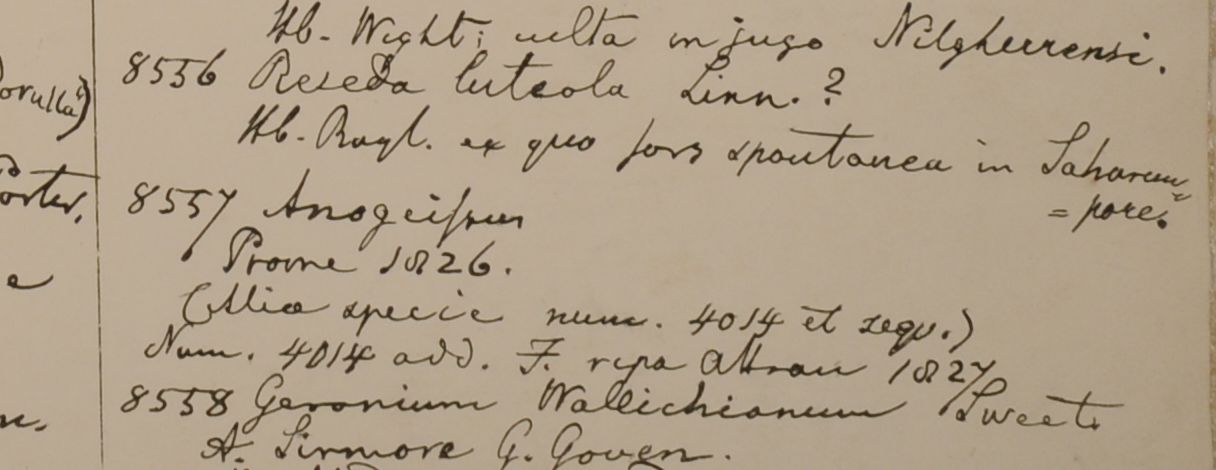 Hb. Wight; culta in jugo Nilgheerensi.
orulla)
8556 Reseda luteola Linn.?
Hb. Royl. ex quo fors spontanea in Saharun=
=pore.
orter.
8557 Anogeissus
Prome 1826.
e
(Aliæ specie num. 4014 et sequ.)
Num. 4014 add. F. ripa Attran 1827
8558 Geranium Wallichianum Sweet
n.
A. Sirmore G. Goven.